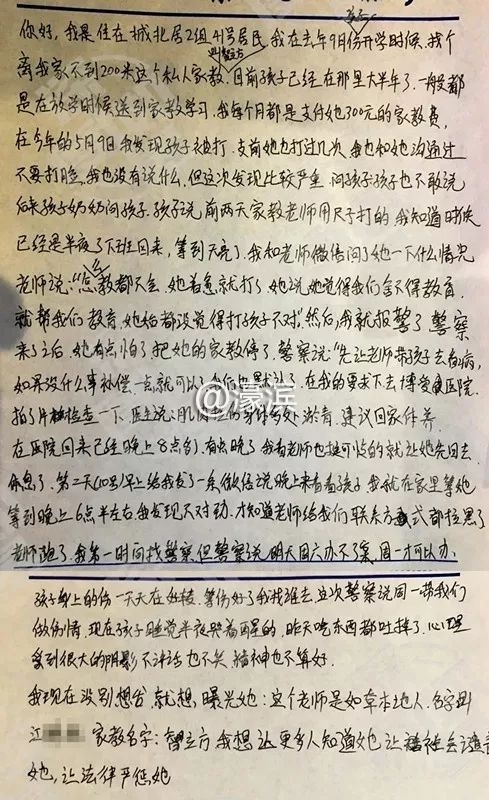 你好，我是住在城北居2组41号居民，我在去年9月份开学时候，找个
离我家不到200米这个私人家教，目前孩子已经在那里大半年了，一般都
是在放学时候送到家教学习，我每个月都是支付她300元的家教费，
在今年的5月9日我发现孩子被打，支前她也打过几次，我也和她沟通过
不要打脸，我也没有说什么，但这次发现比较严重，问孩子孩子也不敢说
后来孩子奶奶问孩子，孩子说前两天家教老师用尺子打的，我知道时候
已经是半夜了下班回来，等到天亮了，我和老师微信问了她一下什么情况
老师说："怎么教都不会，她着急就打，她说她觉得我们舍不得教育，
就帮我们教育，她始都没觉得打孩子不对"，然后我就报警了，警察
来了之后，她有点怕了把她的家教停了，警察说："先让老师带孩子去看病，
如果没什么事补偿一点就可以了，我们也默认了，在我的要求下去博爱医院
拍了片检查一下，医生说：肌肉身体多处淤青，建议回家休养，
在医院回来已经晚上8点多了，有点晚了，我看老师也挺可怜的就让她先回去
休息了，第二天(10号)早上给我发了一条微信说晚上来看看孩子，我就在家里等她
等到晚上6点半左右，我发现不对劲，才知道老师给我们联系方式都拉黑了
老师跑了，我第一时间找警察但警察说，明天周六办不了案，周一才可以办，
@濛滨
孩子身上的伤一天天在好转，等伤好了我找谁去，这次警察说周一带我们
做伤情，现在孩子睡觉半夜哭着醒的，昨天吃东西都吐掉了，心里
受到很大的阴影，不讲话也不笑，精神也不算好，
我现在没别想法，就想，曝光她：这个老师是如皋本地人，名字叫
江 家教名字：智立方，我想让更多人知道她，让社会谴责
她，让法律严惩她